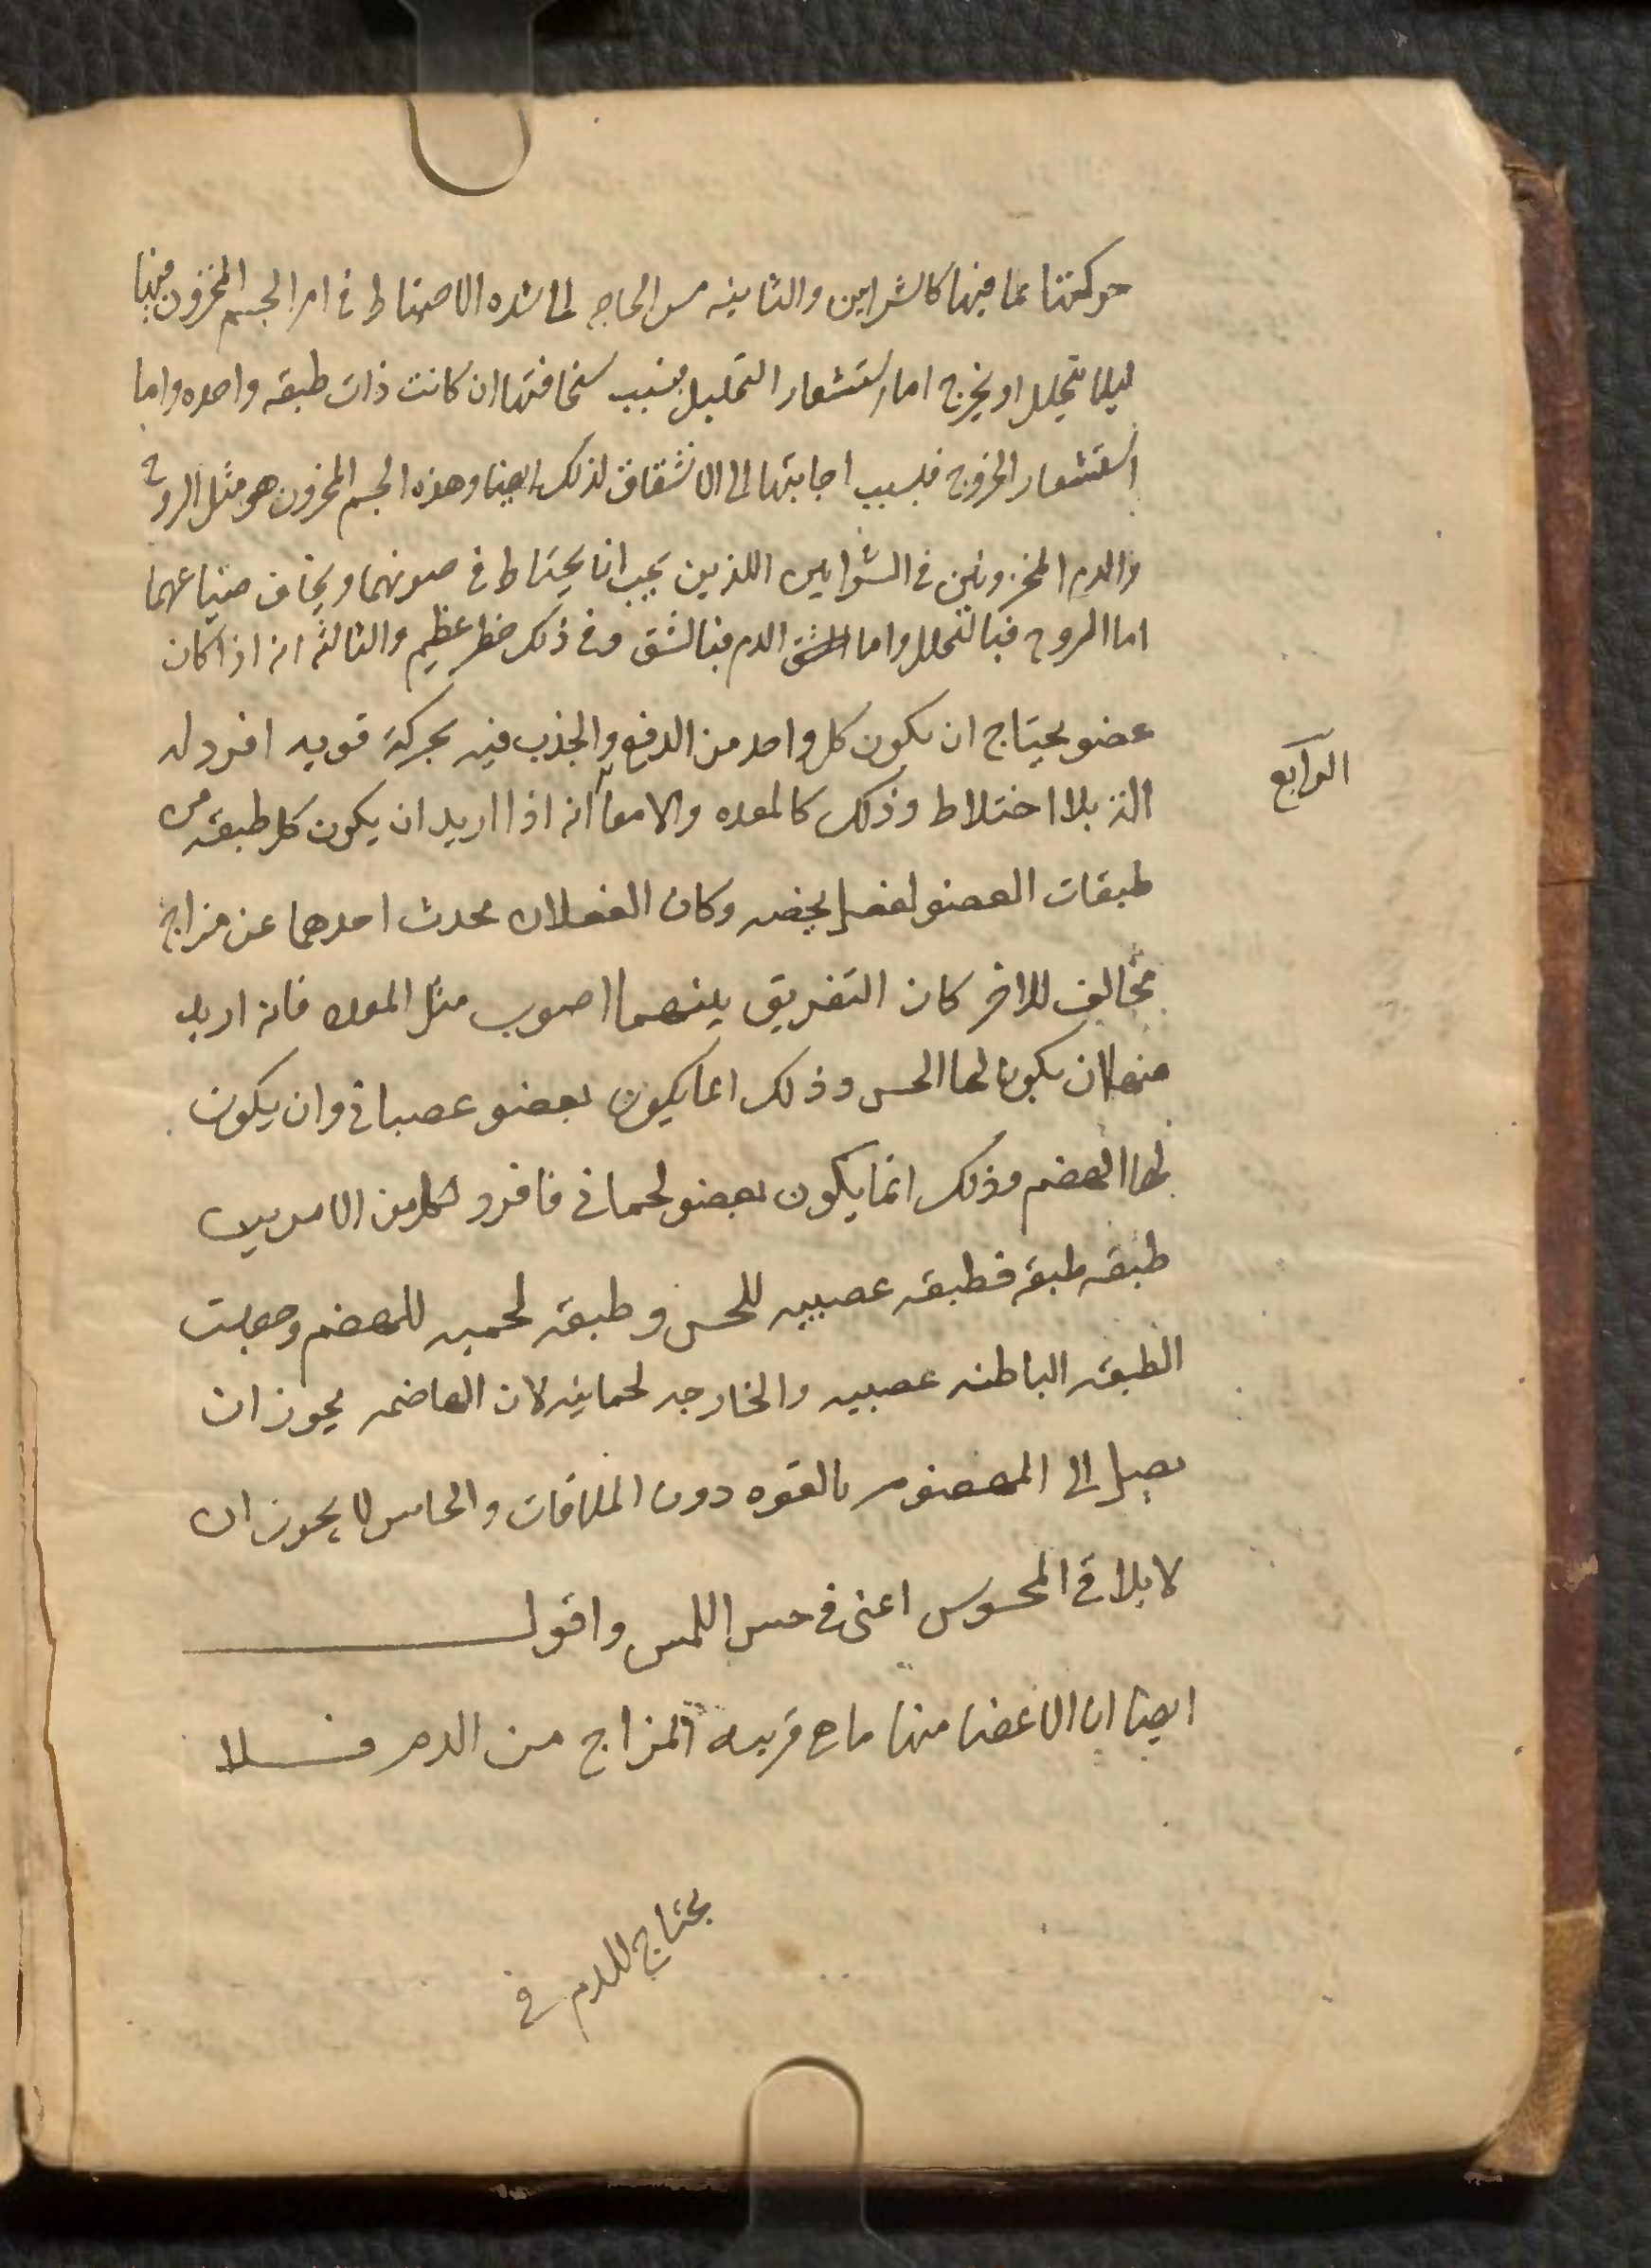 حركتها بما فيها كالشرايين والثانيه مس الحاجه الى شده الاحتياط في امر الجسم المخزون فيها
ليلا يتحلل او يخرج اما استشعار التحليل بسبب سخافتها ان كانت ذات طبقه واحده واما
استشعار الخروج فبسبب اجابتها الى الانشقاق لذلك ايضا وهذه الجسم المخزون هو مثل الروح
والدم المخزونين في الشرايين اللذين يجب ان يحتاط في صونهما ويخاف ضياعهما
اما الروح فبالتحلل واما الدم فبالشق وفي ذلك خطر عظيم والثالثه انه اذا كان
عضو يحتاج ان يكون كل واحد من الدفع والجذب فيه بحركة قويه افرد له
الة بلا اختلاط وذلك كالمعده والامعا انه اذا اريد ان يكون كل طبقه من
الرابع
طبقات العضو لفعل يخصه وكان الفعلان يحدث احدهما عن مزاج
مخالف للاخر كان التفريق بينهما اصوب مثل المعده فانه اريد
منها ان يكون لها الحس وذلك انما يكون بعضو عصباني وان يكون
لها الهضم وذلك انما يكون بعضو لحماني فافرد لكل من الامرين
طبقه طبقة فطبقه عصبيه للحس وطبقه لحميه للهضم وجعلت
الطبقه الباطنه عصبيه والخارجه لحمانيه لان الهاضمه يجوز ان
يصل الى المهضوم بالقوه دون الملاقات والحاس لا يجوز ان
لا يلاقي المحسوس اعني في حس اللمس واقول
ايضا ان الاعضا منها ما هي قريبه المزاج من الدم فلا
يحتاج الدم في